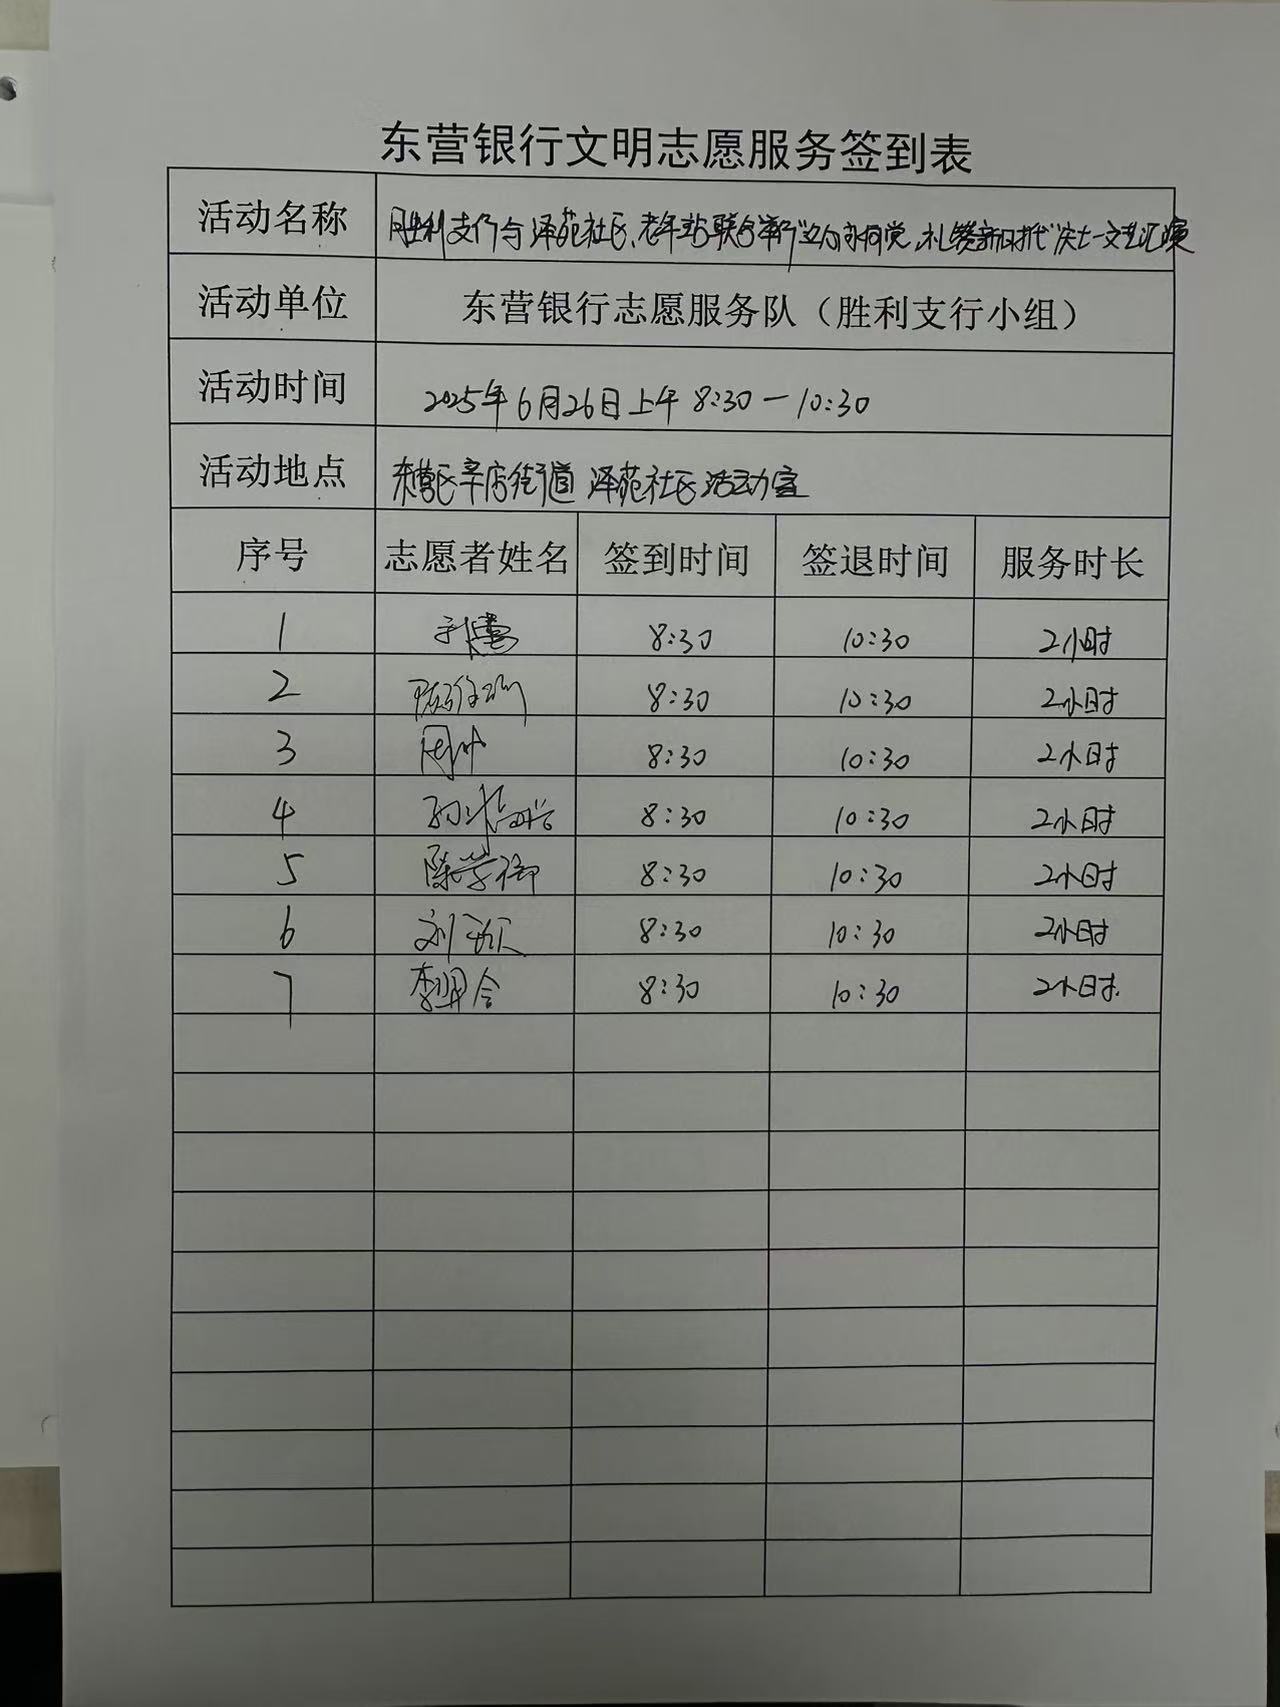 东营银行文明志愿服务签到表
活动名称 胜利支行与泽苑社区、老年站联合举行"立心向党,礼赞新时代"庆七一文艺汇演
活动单位 东营银行志愿服务队（胜利支行小组）
活动时间 2025年6月26日上午8:30—10:30
活动地点 东营区辛店街道泽苑社区活动室
序号 志愿者姓名 签到时间 签退时间 服务时长
1 8:30 10:30 2小时
2 8:30 10:30 2小时
3 8:30 10:30 2小时
4 8:30 10:30 2小时
5 陈学御 8:30 10:30 2小时
6 8:30 10:30 2小时
7 8:30 10:30 2小时